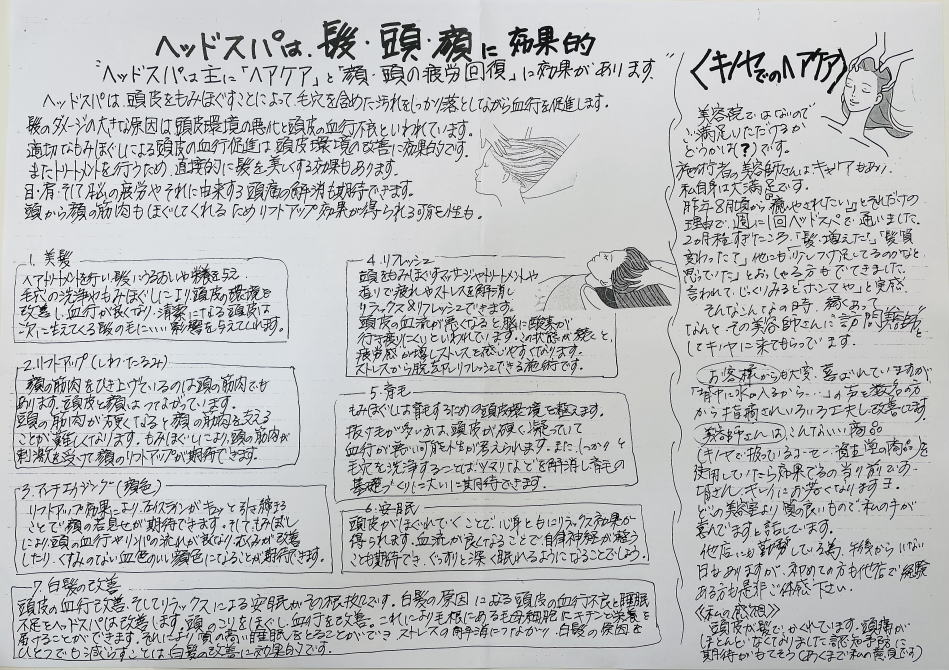 ヘッドスパは、髪・頭・顔に効果的
"ヘッドスパは主に「ヘアケア」と「顔・頭の疲労回復」に効果があります。
ヘッドスパは、頭皮をもみほぐすことによって、毛穴を含めた汚れをしっかり落としながら血行を促進します。
髪のダメージの大きな原因は頭皮環境の悪化と頭皮の血行不良といわれています。
適切なもみほぐしによる頭皮の血行促進は頭皮環境の改善に効果的です。
またトリートメントを行うため、直接的に髪を美しくする効果もあります。
目・肩、そして脳の疲労やそれに由来する頭痛の解消も期待できます。
頭から顔の筋肉もほぐしてくれるためリフトアップ効果が得られる可能性も。
1. 美髪
ヘアトリートメントを行い髪にうるおいや栄養を与え
毛穴の洗浄やもみほぐしにより頭皮の環境を
改善し、血行が良くなり、清潔になる頭皮は
次に生えてくる髪の毛にいい影響を与えてくれます。
2. リフトアップ(しわ・たるみ)
顔の筋肉を引き上げているのは頭の筋肉でも
あります。頭皮と顔はつながっています。
頭の筋肉が硬くなると顔の筋肉を支える
ことが難しくなります。もみほぐしにより、頭の筋肉が
刺激を受けて顔のリフトアップが期待できます。
3. アンチエイジング(顔色)
リフトアップ効果により、フェイスラインがキュッと引き締まる
ことで顔の若見せが期待できます。そしてもみほぐし
により頭の血行やリンパの流れが良くなり、むくみが改善
したり、くすみのない血色のいい顔色になることが期待できます。
4. リフレッシュ
頭をもみほぐすマッサージやトリートメントや
香りで疲れやストレスを解消し
リラックス&リフレッシュできます。
頭皮の血流が悪くなると脳に酸素が
行き渡りにくいといわれています。この状態が続くと、
疲労感が増しストレスを感じやすくなります。
ストレスから脱却しリフレッシュできる施術です。
5. 育毛
もみほぐしは育毛するための頭皮環境を整えます。
抜け毛が多い方は、頭皮が硬く凝っていて
血行が悪い可能性が考えられます。また、しっかりと
毛穴を洗浄することは、ツマリなどを解消し育毛の
基礎づくりに大いに期待できます。
6. 安眠
頭皮がほぐれていくことで心身ともにリラックス効果が
得られます。血流が良くなることで自律神経が整う
ことも期待でき、ぐっすりと深く眠れるようになることでしょう。
7. 白髪の改善
頭皮の血行改善、そしてリラックスによる安眠がその根拠です。白髪の原因になる頭皮の血行不良と睡眠
不足をヘッドスパは改善します。頭のこりをほぐし、血行を改善。これにより毛根にある毛母細胞にキチンと栄養を
届けることができます。それにより質の高い睡眠をとることができストレスの解消につながり、白髪の原因を
ひとつでも減らすことは白髪の改善に効果的です。
〈キノヤでのヘアケア〉
美容院ではないので
ご満足いただけるか
どうかは(?)です。
施術者の美容師さんはキャリアもあり、
私自身は大満足です。
昨年8月頃から「癒やされたい」とそれだけの
理由で、週に1回ヘッドスパで通いました。
2ヵ月程すぎたころ、「髪、増えた」「髪質
変わった?て」他にも
思っていた」とおっしゃる方もでてきました。
言われて、じっくりみると「ホンマや」と実感。
そんなこんなの時、縁あって
なんと その美容師さんに訪問美容師と
してキノヤに来てもらっています。
お客様からも大変、喜ばれていますが、
「背中に水が入るから…」の声を数名の方
から指摘されいろいろ工夫し改善します
美容師さんは、こんないい商品
(キノヤで扱っているヨーモー・資生堂の商品)を
使用していたら効果でるの当り前です。
皆さん、キレイにお若くなりますヨ。
どの美容室より質の良いもので私の手が
喜んでますと話しています。
他店にも勤務している為、午後からいない
日もありますが、初めての方も他店で経験
ある方も是非ご体感下さい。
《私の感想》
頭皮が髪でかくれています。頭痛が
ほとんどなくなりました 認知予防に
期待がもてそう(あくまで私の意見です)